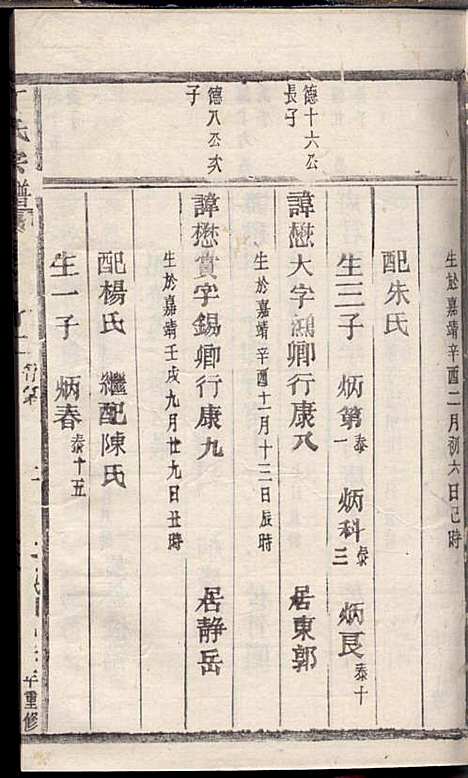 生於嘉靖辛酉二月初六日巳時
配朱氏
生三子 炳第泰一 炳科泰三 炳艮泰十
德十六公長子
諱懋大字鴻卿行康八 居東郭
生於嘉靖辛酉十一月十三日辰時
德八公次子
諱懋賞字錫卿行康九 居静岳
生於嘉靖壬戌九月廿九日丑時
配楊氏 繼配陳氏
生一子 炳春泰十五
氏宗譜
年重修